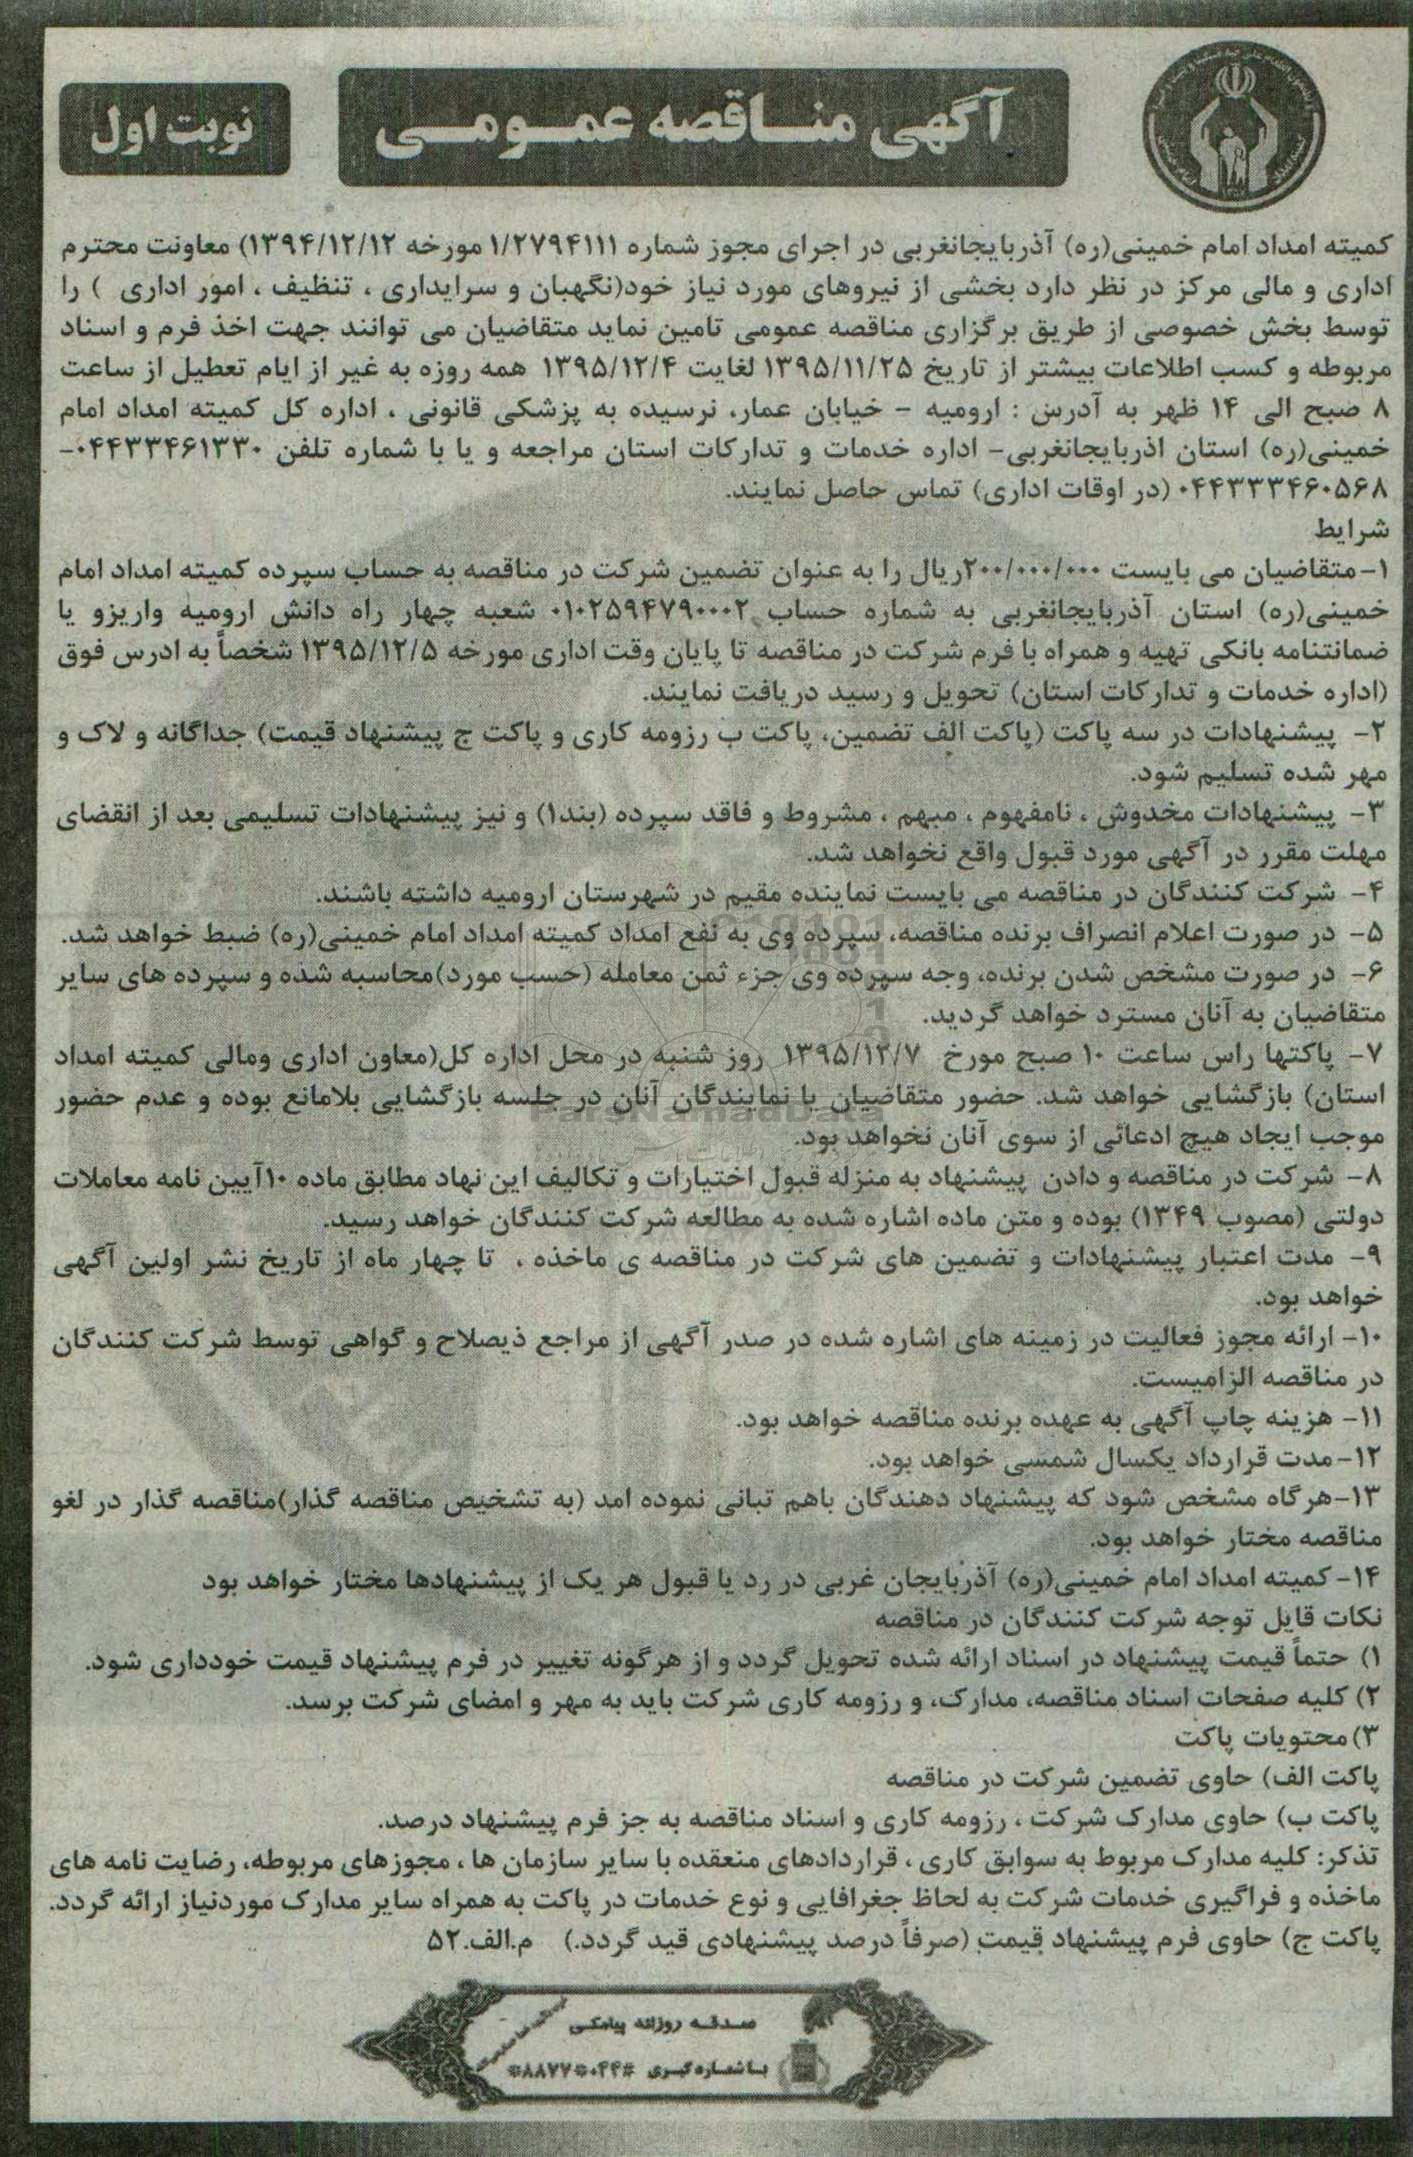 آگهی مناقصه عمومی
نوبت اول
کمیته امداد امام خمینی(ره) آذربایجانغربی در اجرای مجوز شماره ۱/۲۷۹۴۱۱۱ مورخه ۱۳۹۴/۱۲/۱۲) معاونت محترم
اداری و مالی مرکز در نظر دارد بخشی از نیروهای مورد نیاز خود(نگهبان و سرایداری ، تنظیف ، امور اداری ) را
توسط بخش خصوصی از طریق برگزاری مناقصه عمومی تامین نماید متقاضیان می توانند جهت اخذ فرم و اسناد
مربوطه و کسب اطلاعات بیشتر از تاریخ ۱۳۹۵/۱۱/۲۵ لغایت ۱۳۹۵/۱۲/۴ همه روزه به غیر از ایام تعطیل از ساعت
۸ صبح الی ۱۴ ظهر به آدرس : ارومیه - خیابان عمار، نرسیده به پزشکی قانونی ، اداره کل کمیته امداد امام
خمینی(ره) استان اذربایجانغربی- اداره خدمات و تدارکات استان مراجعه و یا با شماره تلفن ۰۴۴۳۳۴۶۱۳۳۰-
۰۴۴۳۳۳۴۶۰۵۶۸ (در اوقات اداری) تماس حاصل نمایند.
شرایط
۱-متقاضیان می بایست ۲۰۰/۰۰۰/۰۰۰ریال را به عنوان تضمین شرکت در مناقصه به حساب سپرده کمیته امداد امام
خمینی(ره) استان آذربایجانغربی به شماره حساب ۰۱۰۲۵۹۴۷۹۰۰۰۲ شعبه چهار راه دانش ارومیه واریزو یا
ضمانتنامه بانکی تهیه و همراه با فرم شرکت در مناقصه تا پایان وقت اداری مورخه ۱۳۹۵/۱۲/۵ شخصاً به ادرس فوق
(اداره خدمات و تدارکات استان) تحویل و رسید دریافت نمایند.
۲- پیشنهادات در سه پاکت (پاکت الف تضمین، پاکت ب رزومه کاری و پاکت ج پیشنهاد قیمت) جداگانه و لاک و
مهر شده تسلیم شود.
۳- پیشنهادات مخدوش ، نامفهوم ، مبهم ، مشروط و فاقد سپرده (بند۱) و نیز پیشنهادات تسلیمی بعد از انقضای
مهلت مقرر در آگهی مورد قبول واقع نخواهد شد.
۴- شرکت کنندگان در مناقصه می بایست نماینده مقیم در شهرستان ارومیه داشته باشند.
۵- در صورت اعلام انصراف برنده مناقصه، سپرده وی به نفع امداد کمیته امداد امام خمینی(ره) ضبط خواهد شد.
۶- در صورت مشخص شدن برنده، وجه سپرده وی جزء ثمن معامله (حسب مورد)محاسبه شده و سپرده های سایر
متقاضیان به آنان مسترد خواهد گردید.
۷- پاکتها راس ساعت ۱۰ صبح مورخ ۱۳۹۵/۱۲/۷ روز شنبه در محل اداره کل(معاون اداری ومالی کمیته امداد
استان) بازگشایی خواهد شد. حضور متقاضیان یا نمایندگان آنان در جلسه بازگشایی بلامانع بوده و عدم حضور
ParsNamadData
موجب ایجاد هیچ ادعائی از سوی آنان نخواهد بود.
۸- شرکت در مناقصه و دادن پیشنهاد به منزله قبول اختیارات و تکالیف این نهاد مطابق ماده ۱۰آیین نامه معاملات
دولتی (مصوب ۱۳۴۹) بوده و متن ماده اشاره شده به مطالعه شرکت کنندگان خواهد رسید.
۹- مدت اعتبار پیشنهادات و تضمین های شرکت در مناقصه ی ماخذه ، تا چهار ماه از تاریخ نشر اولین آگهی
خواهد بود.
۱۰- ارائه مجوز فعالیت در زمینه های اشاره شده در صدر آگهی از مراجع ذیصلاح و گواهی توسط شرکت کنندگان
در مناقصه الزامیست.
۱۱- هزینه چاپ آگهی به عهده برنده مناقصه خواهد بود.
۱۲-مدت قرارداد یکسال شمسی خواهد بود.
۱۳-هرگاه مشخص شود که پیشنهاد دهندگان باهم تبانی نموده امد (به تشخیص مناقصه گذار)مناقصه گذار در لغو
مناقصه مختار خواهد بود.
۱۴-کمیته امداد امام خمینی(ره) آذربایجان غربی در رد یا قبول هر یک از پیشنهادها مختار خواهد بود
نکات قابل توجه شرکت کنندگان در مناقصه
۱) حتماً قیمت پیشنهاد در اسناد ارائه شده تحویل گردد و از هرگونه تغییر در فرم پیشنهاد قیمت خودداری شود.
۲) کلیه صفحات اسناد مناقصه، مدارک، و رزومه کاری شرکت باید به مهر و امضای شرکت برسد.
۳)محتویات پاکت
پاکت الف) حاوی تضمین شرکت در مناقصه
پاکت ب) حاوی مدارک شرکت ، رزومه کاری و اسناد مناقصه به جز فرم پیشنهاد درصد.
تذکر: کلیه مدارک مربوط به سوابق کاری ، قراردادهای منعقده با سایر سازمان ها ، مجوزهای مربوطه، رضایت نامه های
ماخذه و فراگیری خدمات شرکت به لحاظ جغرافایی و نوع خدمات در پاکت به همراه سایر مدارک موردنیاز ارائه گردد.
پاکت ج) حاوی فرم پیشنهاد قیمت (صرفاً درصد پیشنهادی قید گردد.) م.الف.۵۲
صدقه روزانه پیامکی
با شماره گیری #۰۴۴*۸۸۷۷*